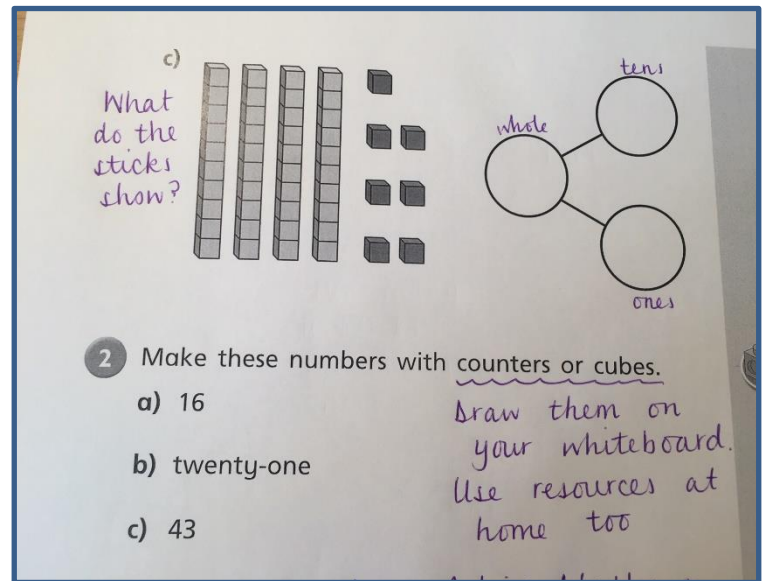 c)
What
do the
sticks
show?
tens
whole
ones
2 Make these numbers with counters or cubes.
a) 16
b) twenty-one
c) 43
Draw them on
your whiteboard.
Use resources at
home too